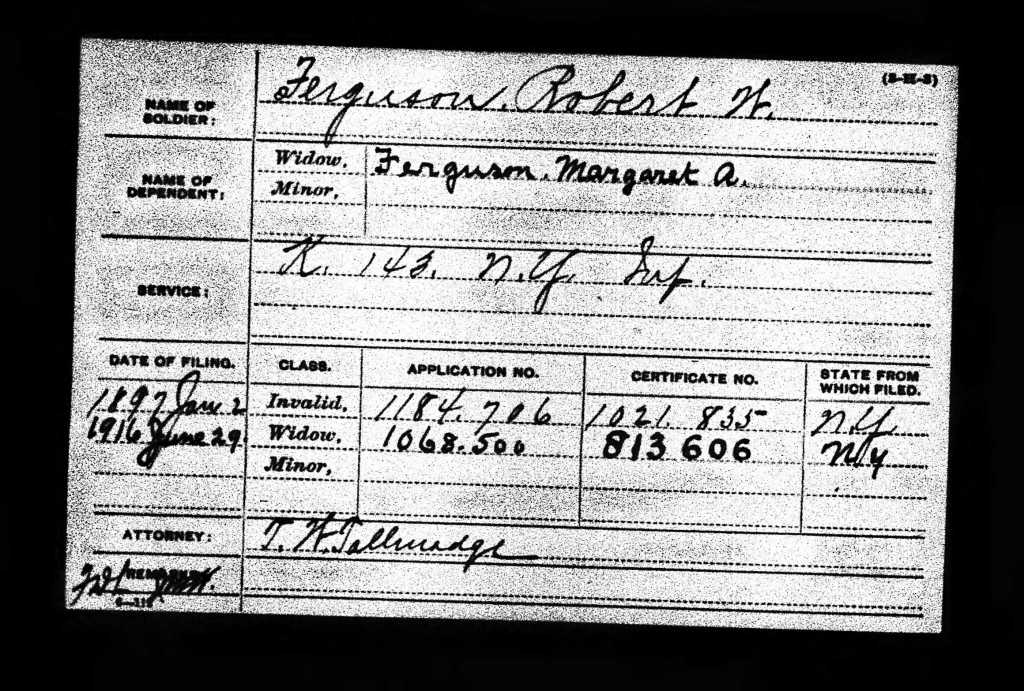 (3-II-3)
NAME OF SOLDIER: Ferguson, Robert W.
NAME OF DEPENDENT: Widow, Ferguson, Margaret A.
Minor,
SERVICE: K. 143. N.Y. Inf.
DATE OF FILING. CLASS. APPLICATION NO. CERTIFICATE NO. STATE FROM WHICH FILED.
1897 Jan. 2 Invalid, 1184.706 1021.835 N.Y.
1916 June 29 Widow, 1068.500 813606 N.Y
Minor,
ATTORNEY: T. W. Tallmadge
REMARKS